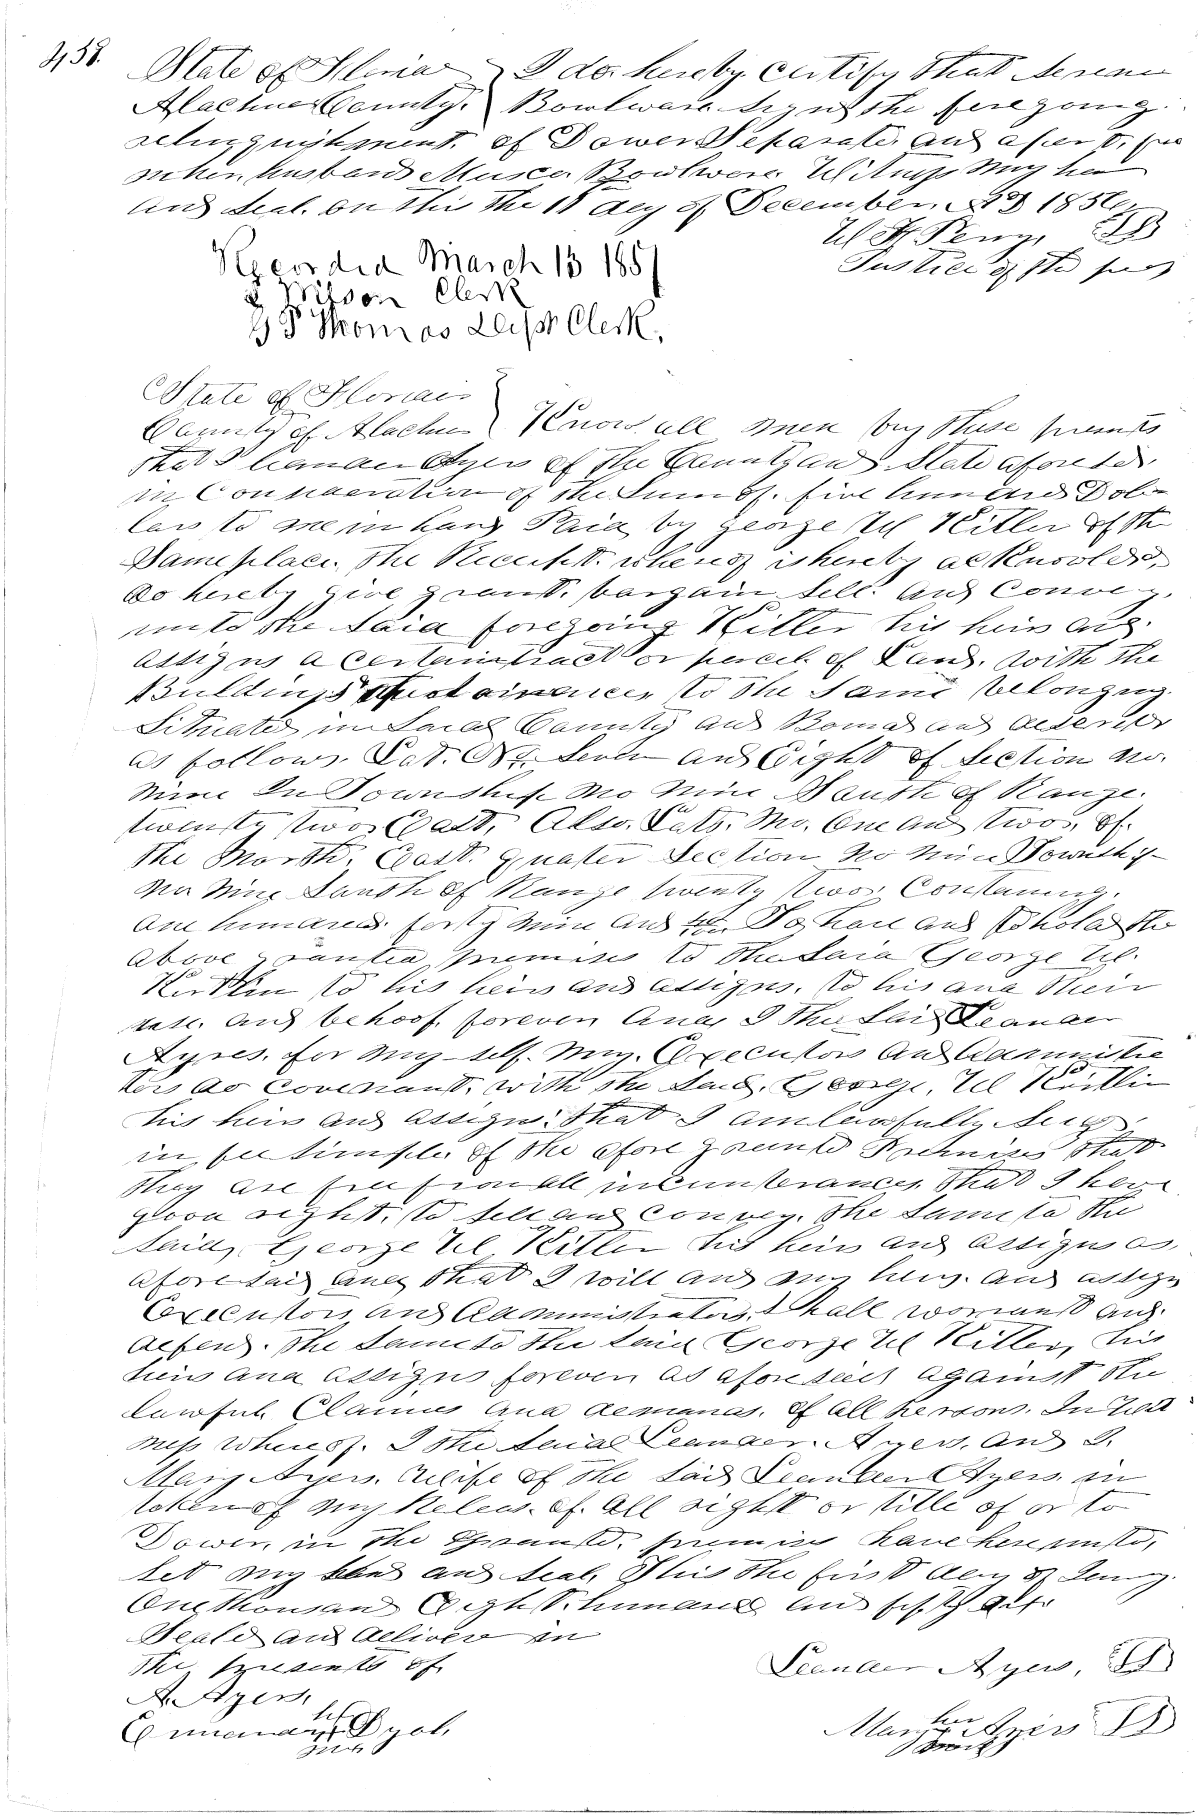 458.
State of Florida } I do hereby certify that Serena
Alachua County. } Bowlware signd the foregoing
relinquishment of Dower Separate and apart fro
m her husband Bowlware. Witness my han
and Seal. on this the 18 day of December AD 1856
W H Peny,
Justice of the peas
Recorded March 13 185
Wilson Clerk
Thomas Clerk.
State of Florida
County of Alachua } Know all men by these presents
that I Leander Ayers of the County and State aforesd.
in Consideration of the Sum of. five hundred Dol-
lars to me in hand Paid by George W Kitler of the
Same place. The Receipt. whereof is hereby acknowled,
do hereby give grant. bargain Sell. and Convey.
unto the Said foregoing Kitler his heirs and.
assigns a certain tract or parcel of Land. with the
Buildings to the Same belonging.
Situated in Said County and Bound and
as follows. Lot. No. Seven and Eight of Section no.
Nine In Township No Nine South of Range.
twenty two East. Also. Lots. No. One and two. of.
the North. East. quater Section No Nine Township
No Nine South of Range twenty two Containing.
one hundred. forty nine and To have and to hold the
above granted premises to the Said George W.
to his heirs and assigns, to his and their
use. and behoof. forever And I the Said Leander
Ayres. for my-self. my. Executors and Administra
tors do covenant. with the Said. George. W
his heirs and assigns. that I am lawfully
in fee Simple. of the afore granted Premises that
they are free from all incumberances. that I have
good right. to Sell and convey. the Same to the
Said, George W Kitler his heirs and assigns as
afore said and that I will and my heirs. and assigns
Executors and Administrators. Shall warrant and.
defend. the Same to the Said George W Kitler, his
heirs and assigns forever as aforesaid against the
lawful Claimes and demands. of all persons. In Wit
ness whereof. I the Said Leander. Ayers. and I.
Mary Ayers. Wife of the Said Leander Ayers. in
token of my Releas. of. all right or title of or to
Dower. in the Granted. premises have hereunto,
Set my hand and Seal, This the first day of
One thousand Eight hundred and fifty
Seald and deliverd in
the presents of. Leander Ayers,
A. Ayers,
her Mary Ayers
mark